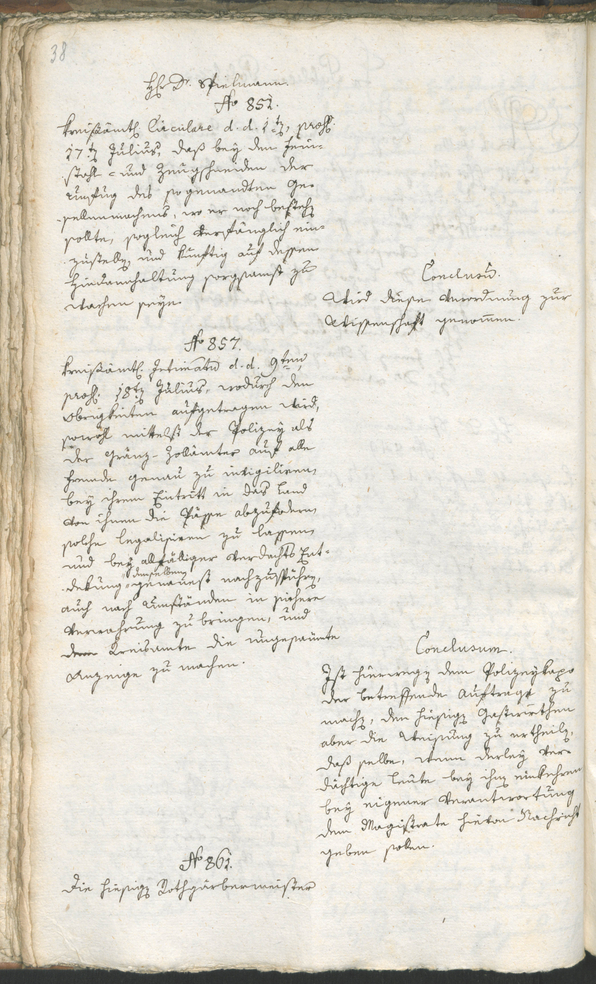 38
Hr. Dr. Spielmann.
No 851.
Kreisämtl. Circulare d. d. 1t, pross.
17t Julius, daß bey den
stahl- und Zeugschmieden der
Unfug des sogenandten Ge-
sellenmachens, wo er noch bestehen
sollte, sogleich verfänglich ein-
zustellen, und künftig auf dessen
Hindanhaltung sorgsamst zu
wachen seye.
Conclusum.
Wird diese Verordnung zur
Wissenschaft genommen.
No 857.
Kreisämtl. Intimatum d. d. 9ten,
pross. 18t Julius, wodurch den
Obrigkeiten aufgetragen wird,
sowohl mittelst der Polizey als
der Gränz-Zollämter auf alle
Fremde genau zu invigiliren,
bey ihrem Eintritt in das Land
von ihnen die Pässe abzufodern,
solche legalisiren zu lassen,
und bey allfälliger Verdachts Ent-
dekung denselben genauest nachzuspühren,
auch nach Umständen in sichere
Verwahrung zu bringen, und
dem Kreisamte die ungesäumte
Anzeige zu machen.
Conclusum.
Ist hierwegen dem Polizeykapo
der betreffende Auftrag zu
machen, den hiesigen Gastwirthen
aber die Weisung zu ertheilen,
daß selbe, wenn derley ver-
dächtige Leute bey ihnen einkehren
bey eigener Verantwortung
dem Magistrate hievon Nachricht
geben sollen.
No 861.
Die hiesigen Rothgärbermeister